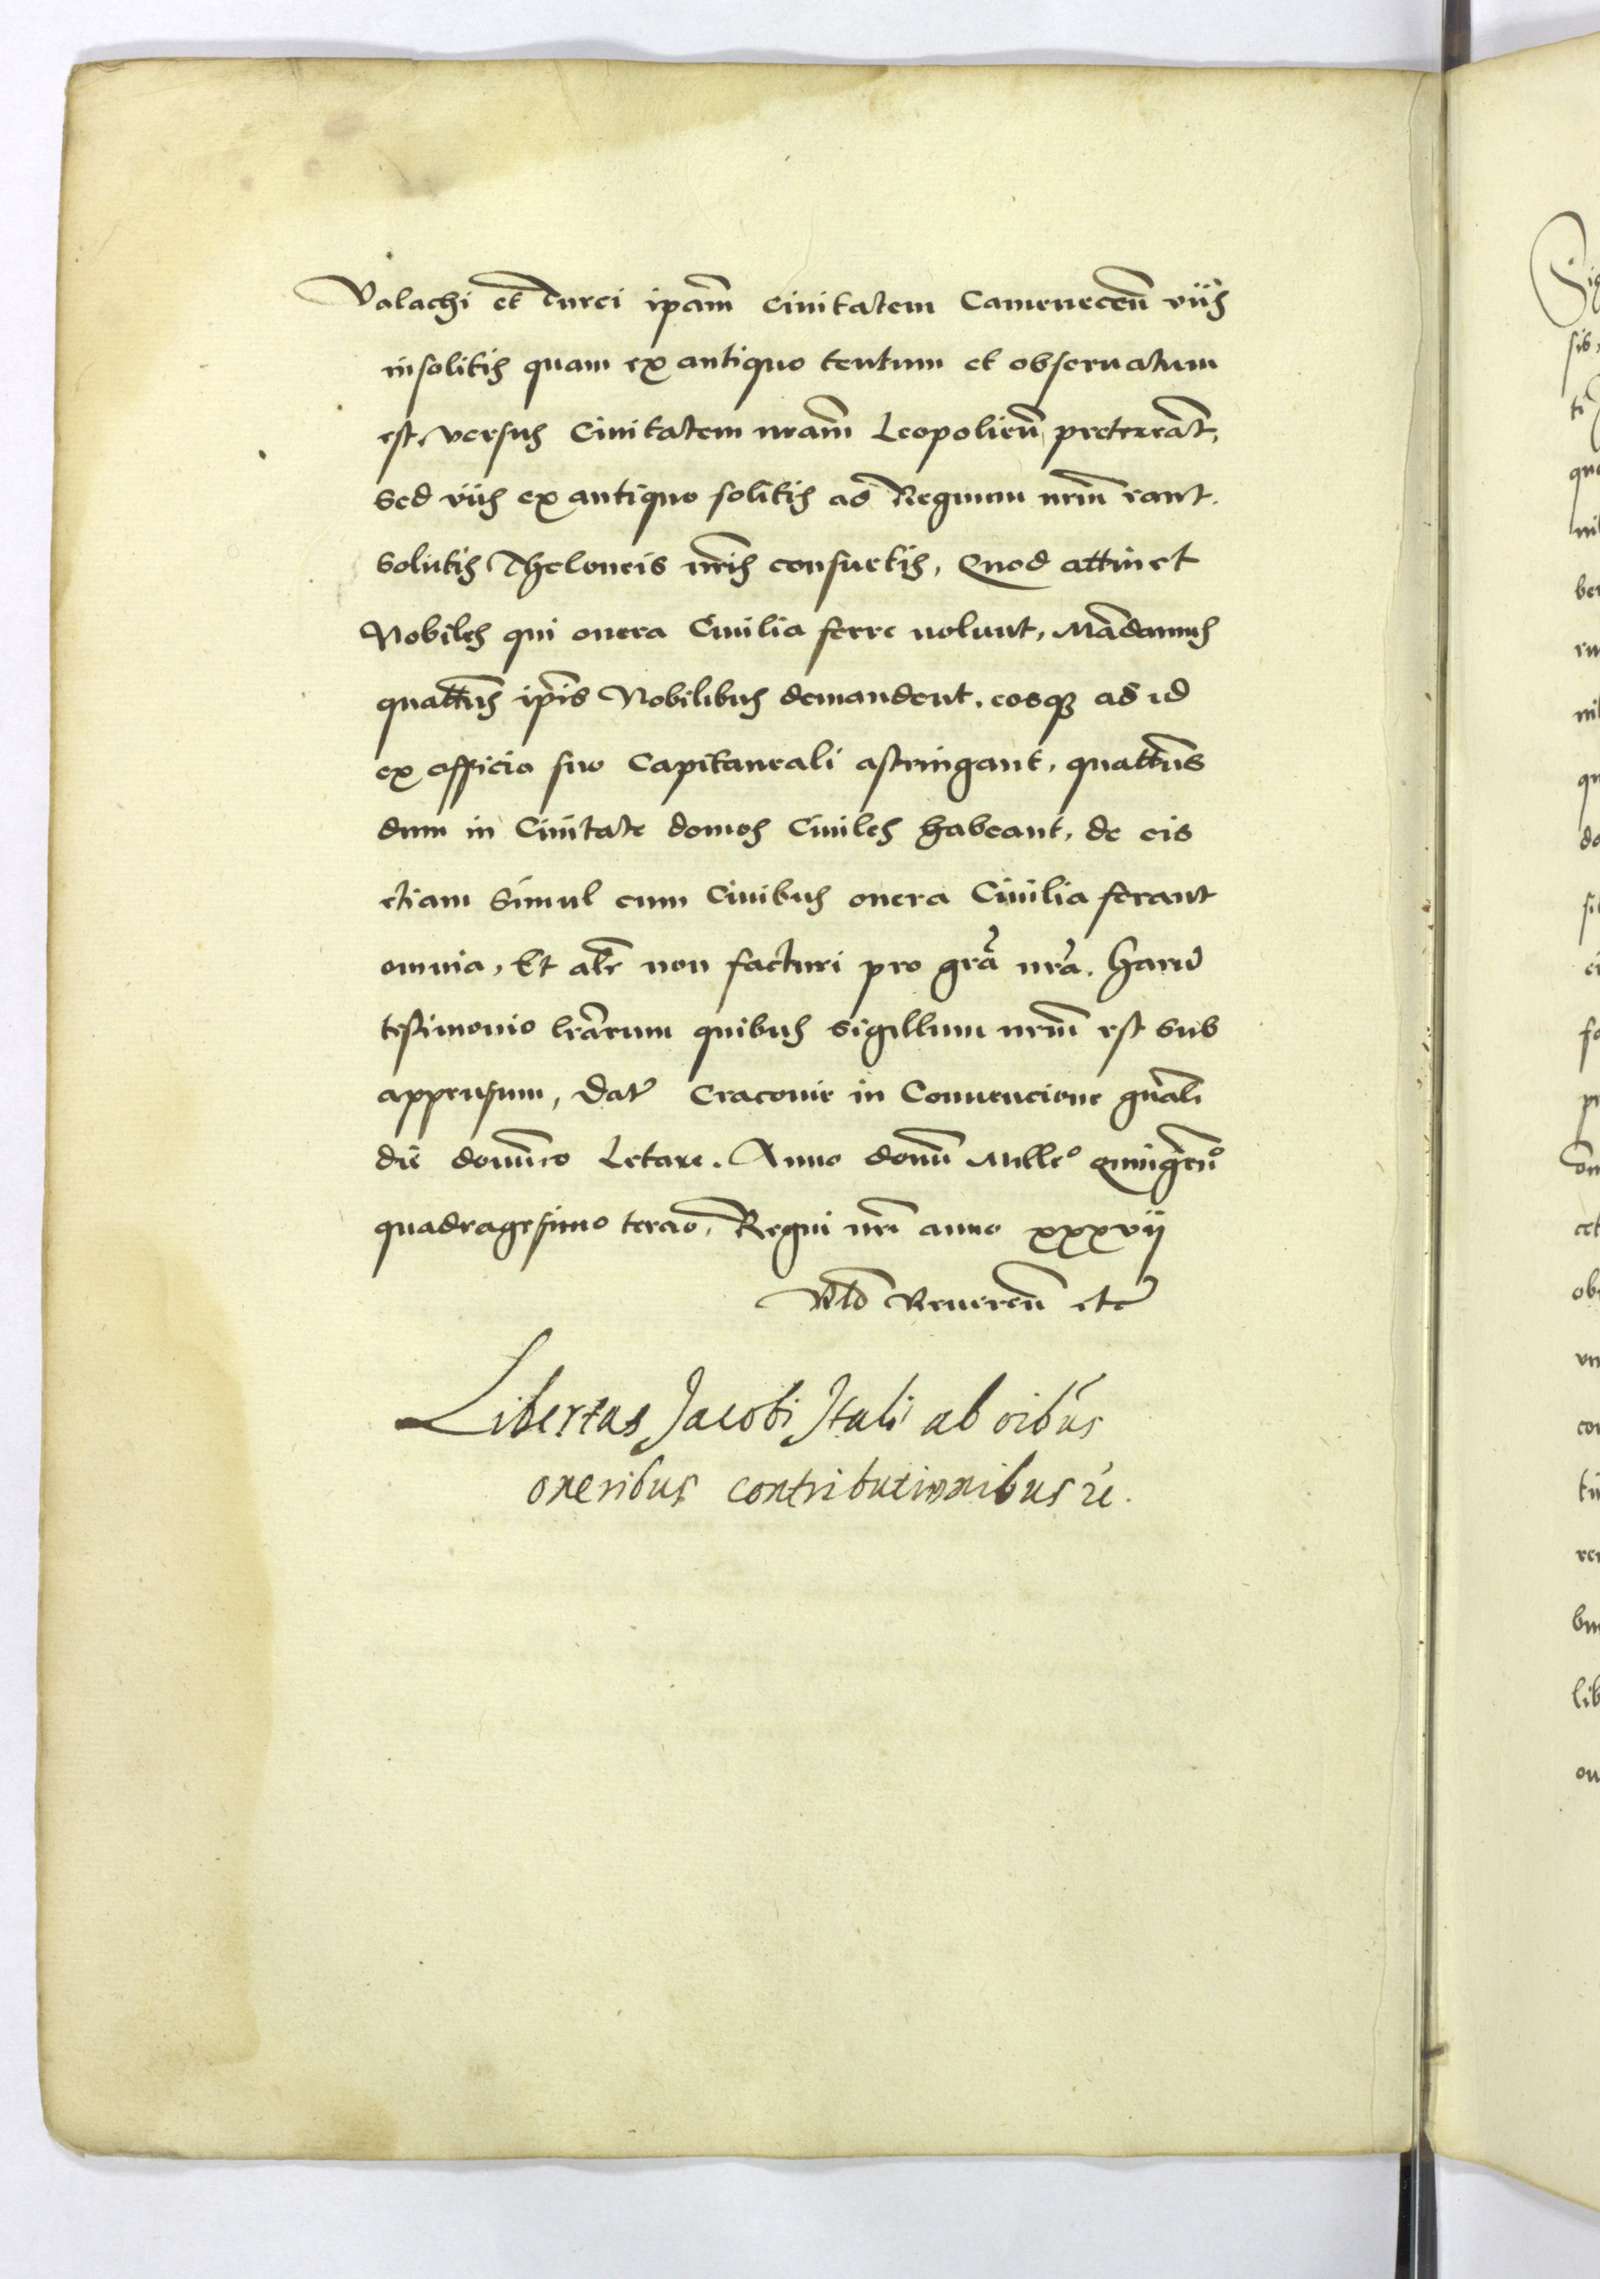 Valachi et Turci ipãm Ciuitatem Camenecen̄ viis
insolitis quam ex antiquo tentum et obseruatum
est, versus Ciuitatem nrãm Leopolien̄ pretereãt,
Sed viis ex antiquo solitis ad Regnum nrm̄ eant.
Solutis Theloneis nr̄is consuetis, Quod attinet
Nobiles qui onera Ciuilia ferre nolunt, Mãdamus
quattn̄s ip̄is Nobilibus demandent, eosq3 ad id
ex officio suo Capitaneali astringant, quattn̄s
dum in Ciuitate domos Ciuiles habeant, de eis
etiam simul cum Ciuibus onera Ciuilia ferant
omnia, Et alr̄ non facturi pro grã nrã. Harũ
testimonio lrãrum quibus Sigillum nrm̄ est sub
appensum, Dat̃ Cracouie in Conuencione gñali
die domĩco Letare. Anno domĩ Mille° Quingen̄°
quadragesimo tercio, Regni nrĩ anno xxxvij
Reueren̄ etc̃
Libertas Jacobi Itali ab oib́us
oneribus contributionibus &c.